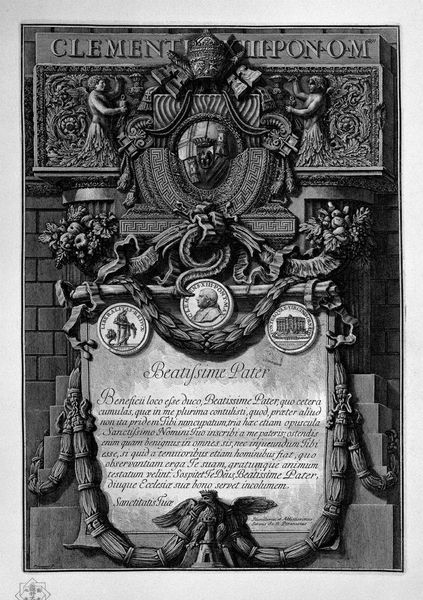 CLEMENTI XIII·PON·O·M
Beatissime Pater
Beneficii loco esse duco, Beatissime Pater, quo cetera
cumulas, quæ in me plurima contulisti, quod, præter aliud
non ita pridem Tibi nuncupatum, tria hæc etiam opuscula
Sanctissimo Nomini Tuo inscribi a me pateris; ostendis
enim quam benignus in omnes sis, nec injucundum Tibi
esse, si quid a tenuioribus etiam hominibus fiat, quo
observantiam erga Te suam, gratumque animum
testatum velint. Sospitet Te Deus, Beatissime Pater,
diuque Ecclesiæ suæ bono servet incolumem.
Sanctitatis Tuæ